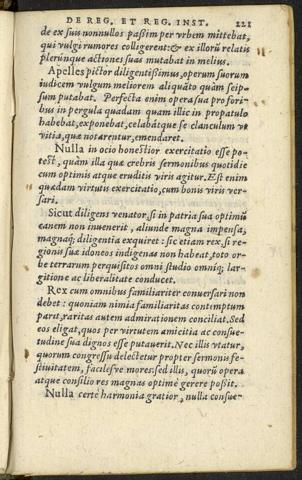 DE REG. ET REG. INST. 221
de ex suis nonnullos paſſim per vrbem mittebat,
qui vulgi rumores colligerent: & ex illorū relatis
plerūnque actiones suas mutabat in melius.
Apelles pictor diligentiſſimus, operum suorum
iudicem vulgum meliorem aliquāto quàm seip-
sum putabat. Perfecta enim opera sua pro fori-
bus in pergula quadam quàm illic in propatulo
habebat, exponebat, celabátque se clanculum vt
vitia, quæ notarentur, emendaret.
Nulla in ocio honeſtior exercitatio eſſe po-
teſt, quàm illa quæ crebris sermonibus quotidie
cum optimis atque eruditis viris agitur. Eſt enim
quædam virtutis exercitatio, cum bonis viris ver-
sari.
Sicut diligens venator, si in patria sua optimū
canem non inuenerit, aliunde magna impensa,
magnáq; diligentia exquiret: sic etiam rex, si re-
gionis suæ idoneos indigenas non habeat, toto or-
be terrarum perquisitos omni studio omniq; lar-
gitione ac liberalitate conducet.
Rex cum omnibus familiariter conuersari non
debet: quoniam nimia familiaritas contemptum
parit, raritas autem admirationem conciliat. Sed
eos eligat, quos per virtutem amicitia ac consue-
tudine sua dignos eſſe putauerit. Nec illis vtatur,
quorum congreſſu delectetur propter sermonis fe-
ſtiuitatem, facilésve mores: sed illis, quorū opera
atque consilio res magnas optimè gerere poſſit.
Nulla certè harmonia gratior, nulla consue-